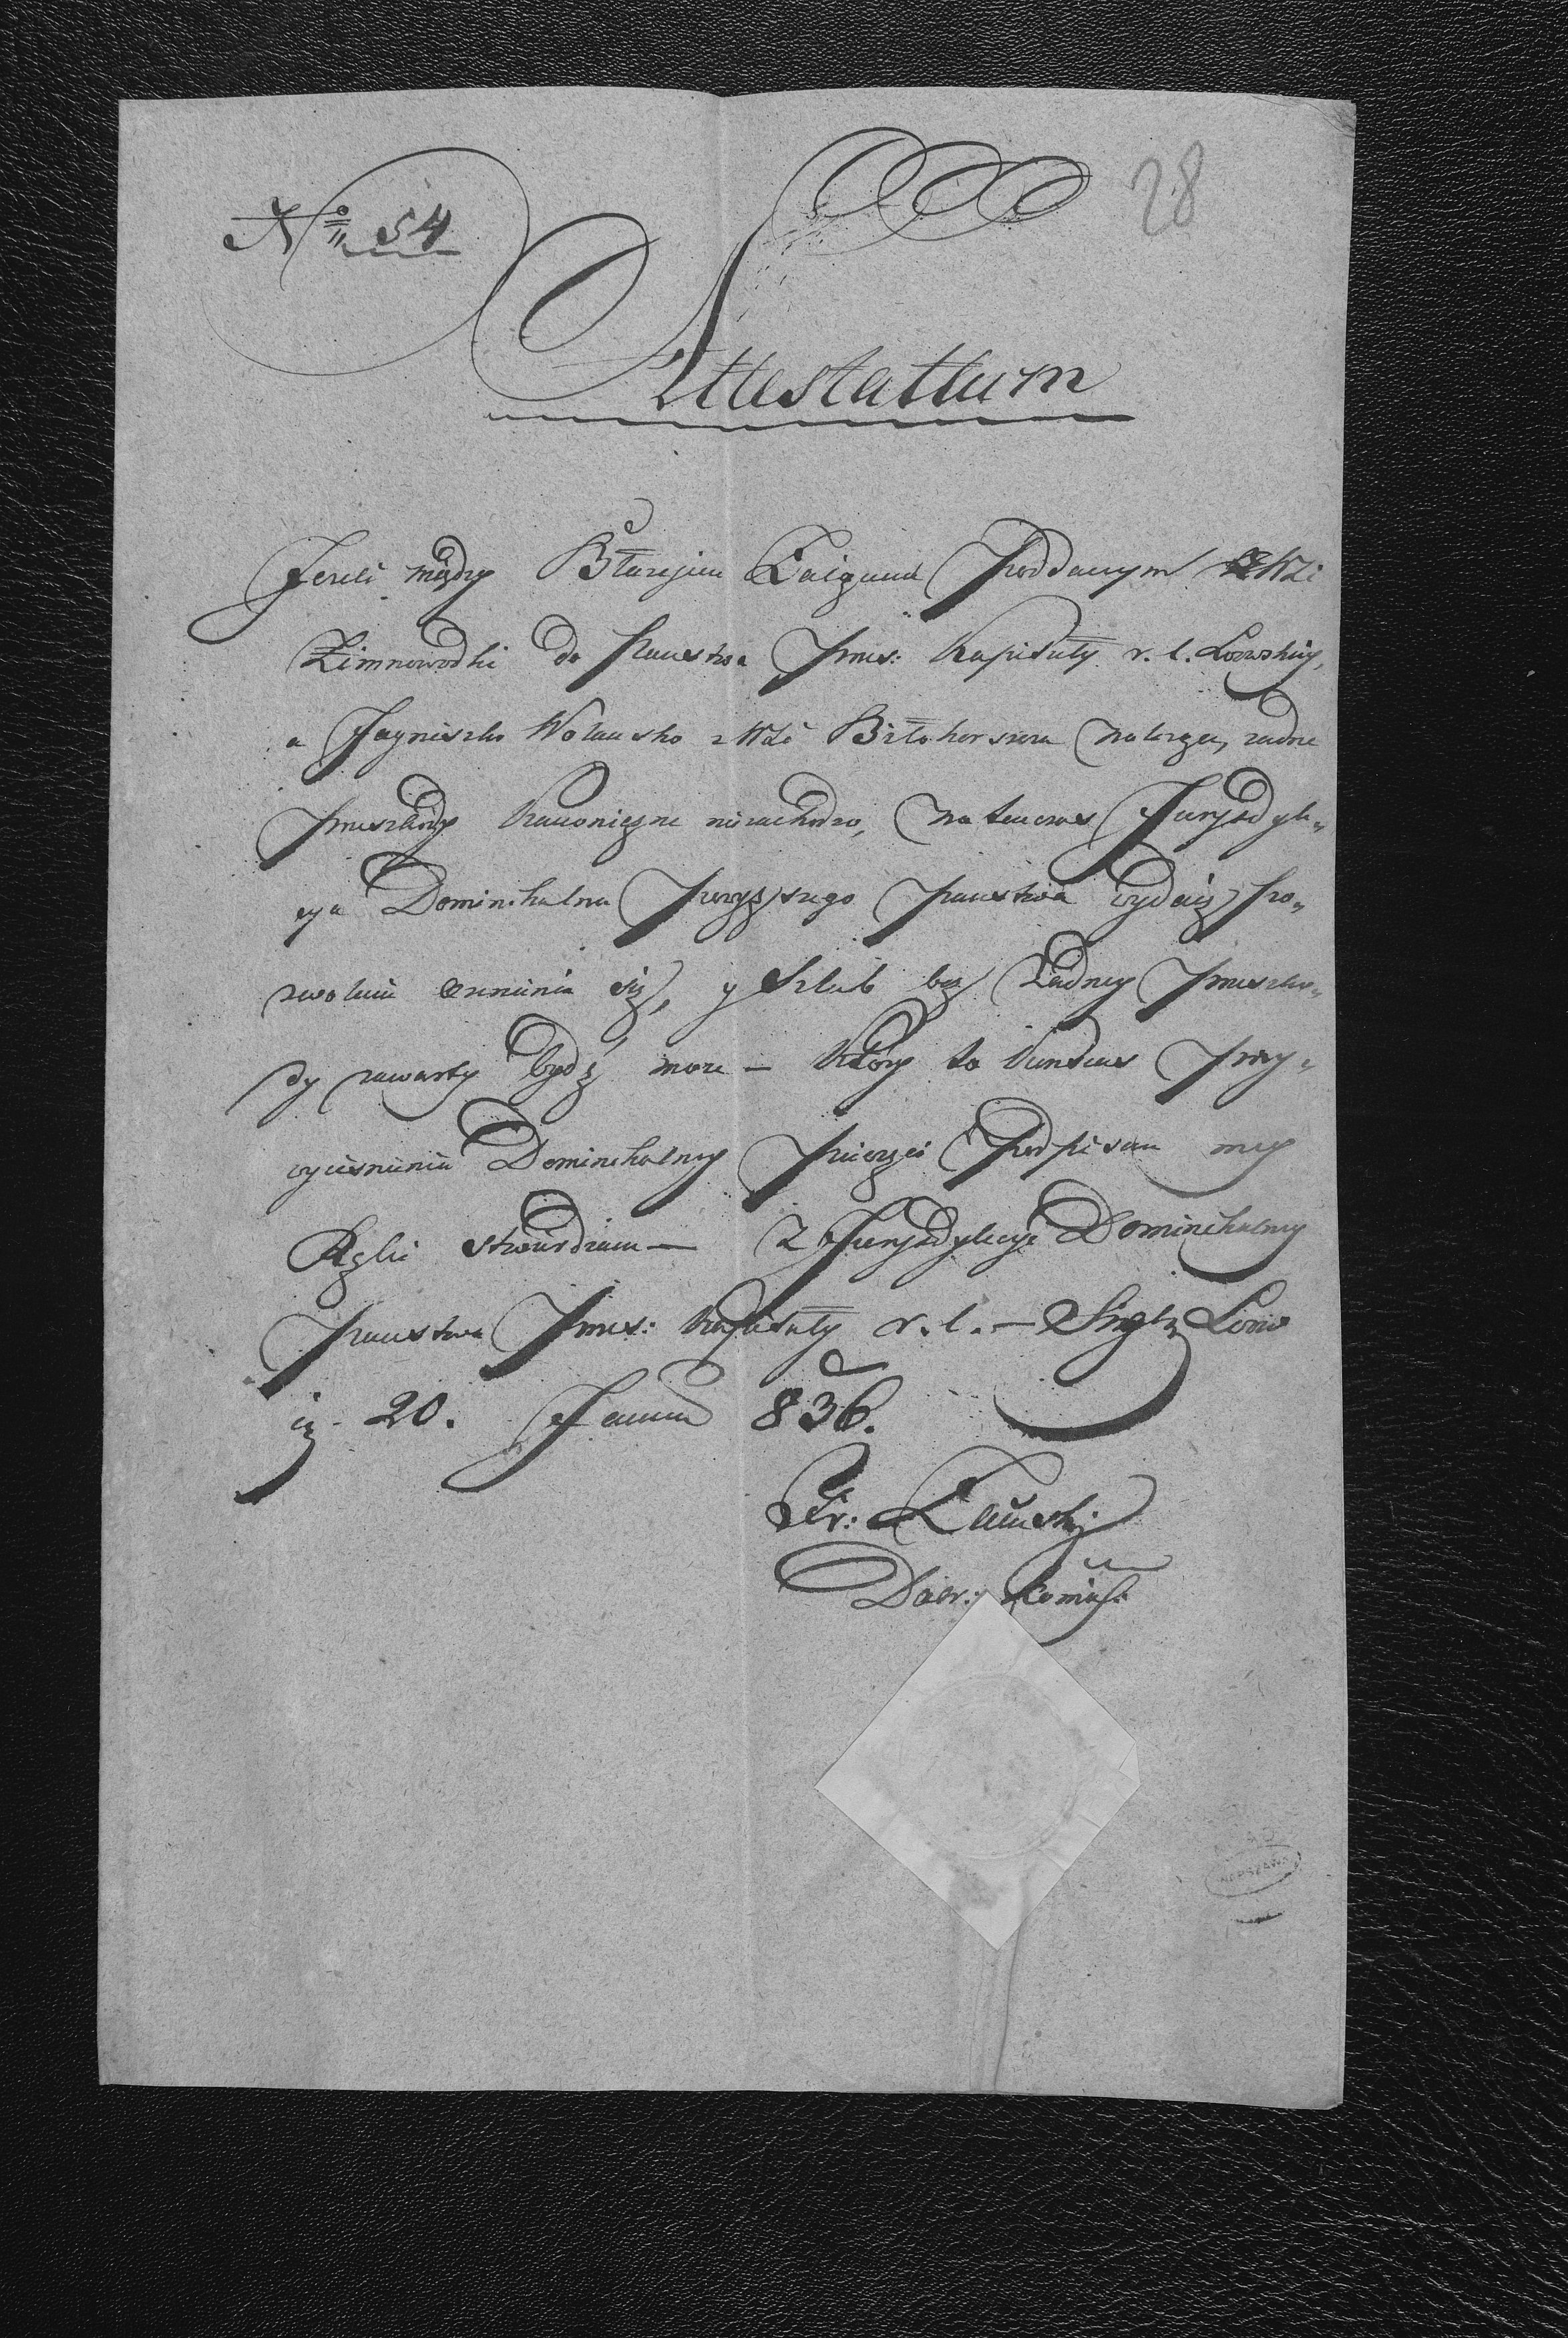 28
No 54
Attestattum
Jeżeli między Błażejem Zaigund Poddanym z Wsi
Zimnowodki do Państwa Prnes: Kapituły r. l. Lwowskiey,
a Jagnieszko Wolansko z Wsi Biłohorszcza należąca, żadne
przeszkody kanoniczne niezachodzo, natenczas Juryzdyk„
cya Dominikalna Powyższego Państwa wydaię Po„
zwolenie żenienia się, y Szlub bez Żadney Przeszko„
dy zawarty bydź może — który to kunsens Przy„
wycisnieniu Dominikalney Pieczęci Podpisem mey
Ręki stwierdzam — Z Juryzdykcyi Dominikalney
Państwa Prnes: Kapituły r. l. — Sight Lwo
ie 20. Januar 836.
Fr:
WARSZAWA